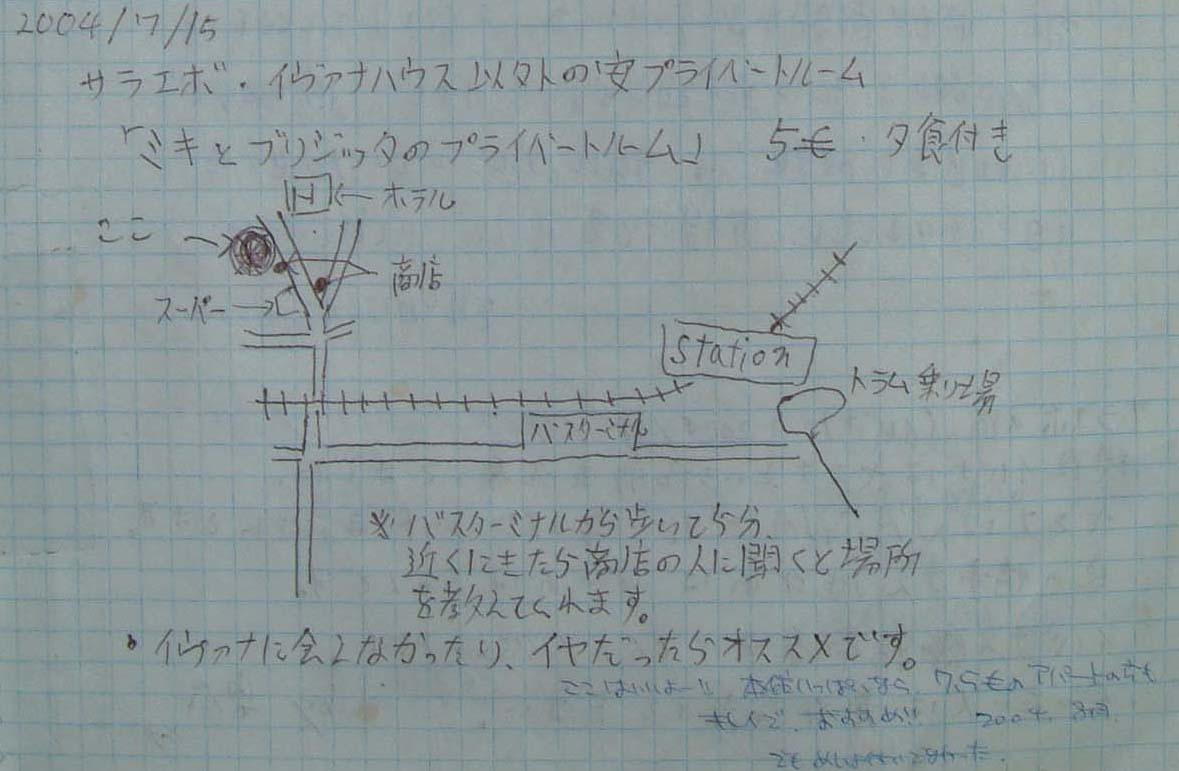 2004/7/15
サラエボ・イヴァナハウス以外の安プライベートルーム
「ミキとブリジッタのプライベートルーム」 5€・夕食付き
H ← ホテル
ここ →
商店
スーパー →
Station
トラム乗り場
バスターミナル
※バスターミナルから歩いて5分。
近くにきたら商店の人に聞くと場所
を教えてくれます。
・イヴァナに会えなかったり、イヤだったらオススメです。
ここはいいよー!! 本館いっぱいなら 7.5€の アパートの方も
キレイで、おすすめ!! 2004.
でも